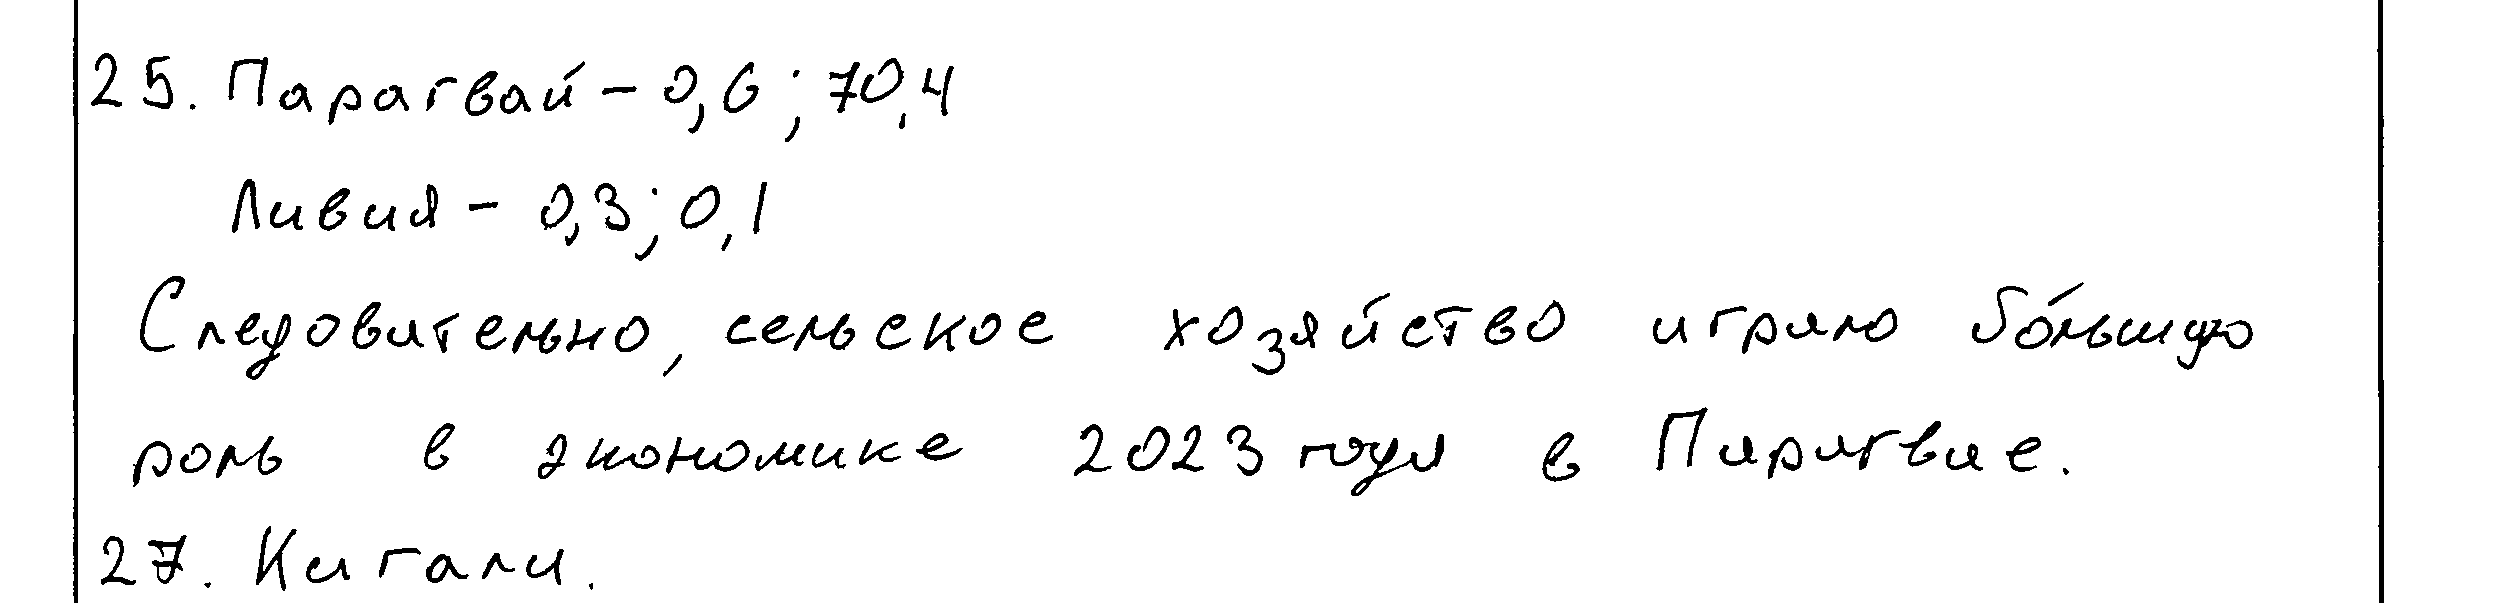 25. Парагвай - 0,6 ; 70,4
Ливия - 0,3; 0,1
Следовательно, сельское хозяйство играло бо́льшую
роль в экономике 2023 года в Парагвае.
27. Кигали.